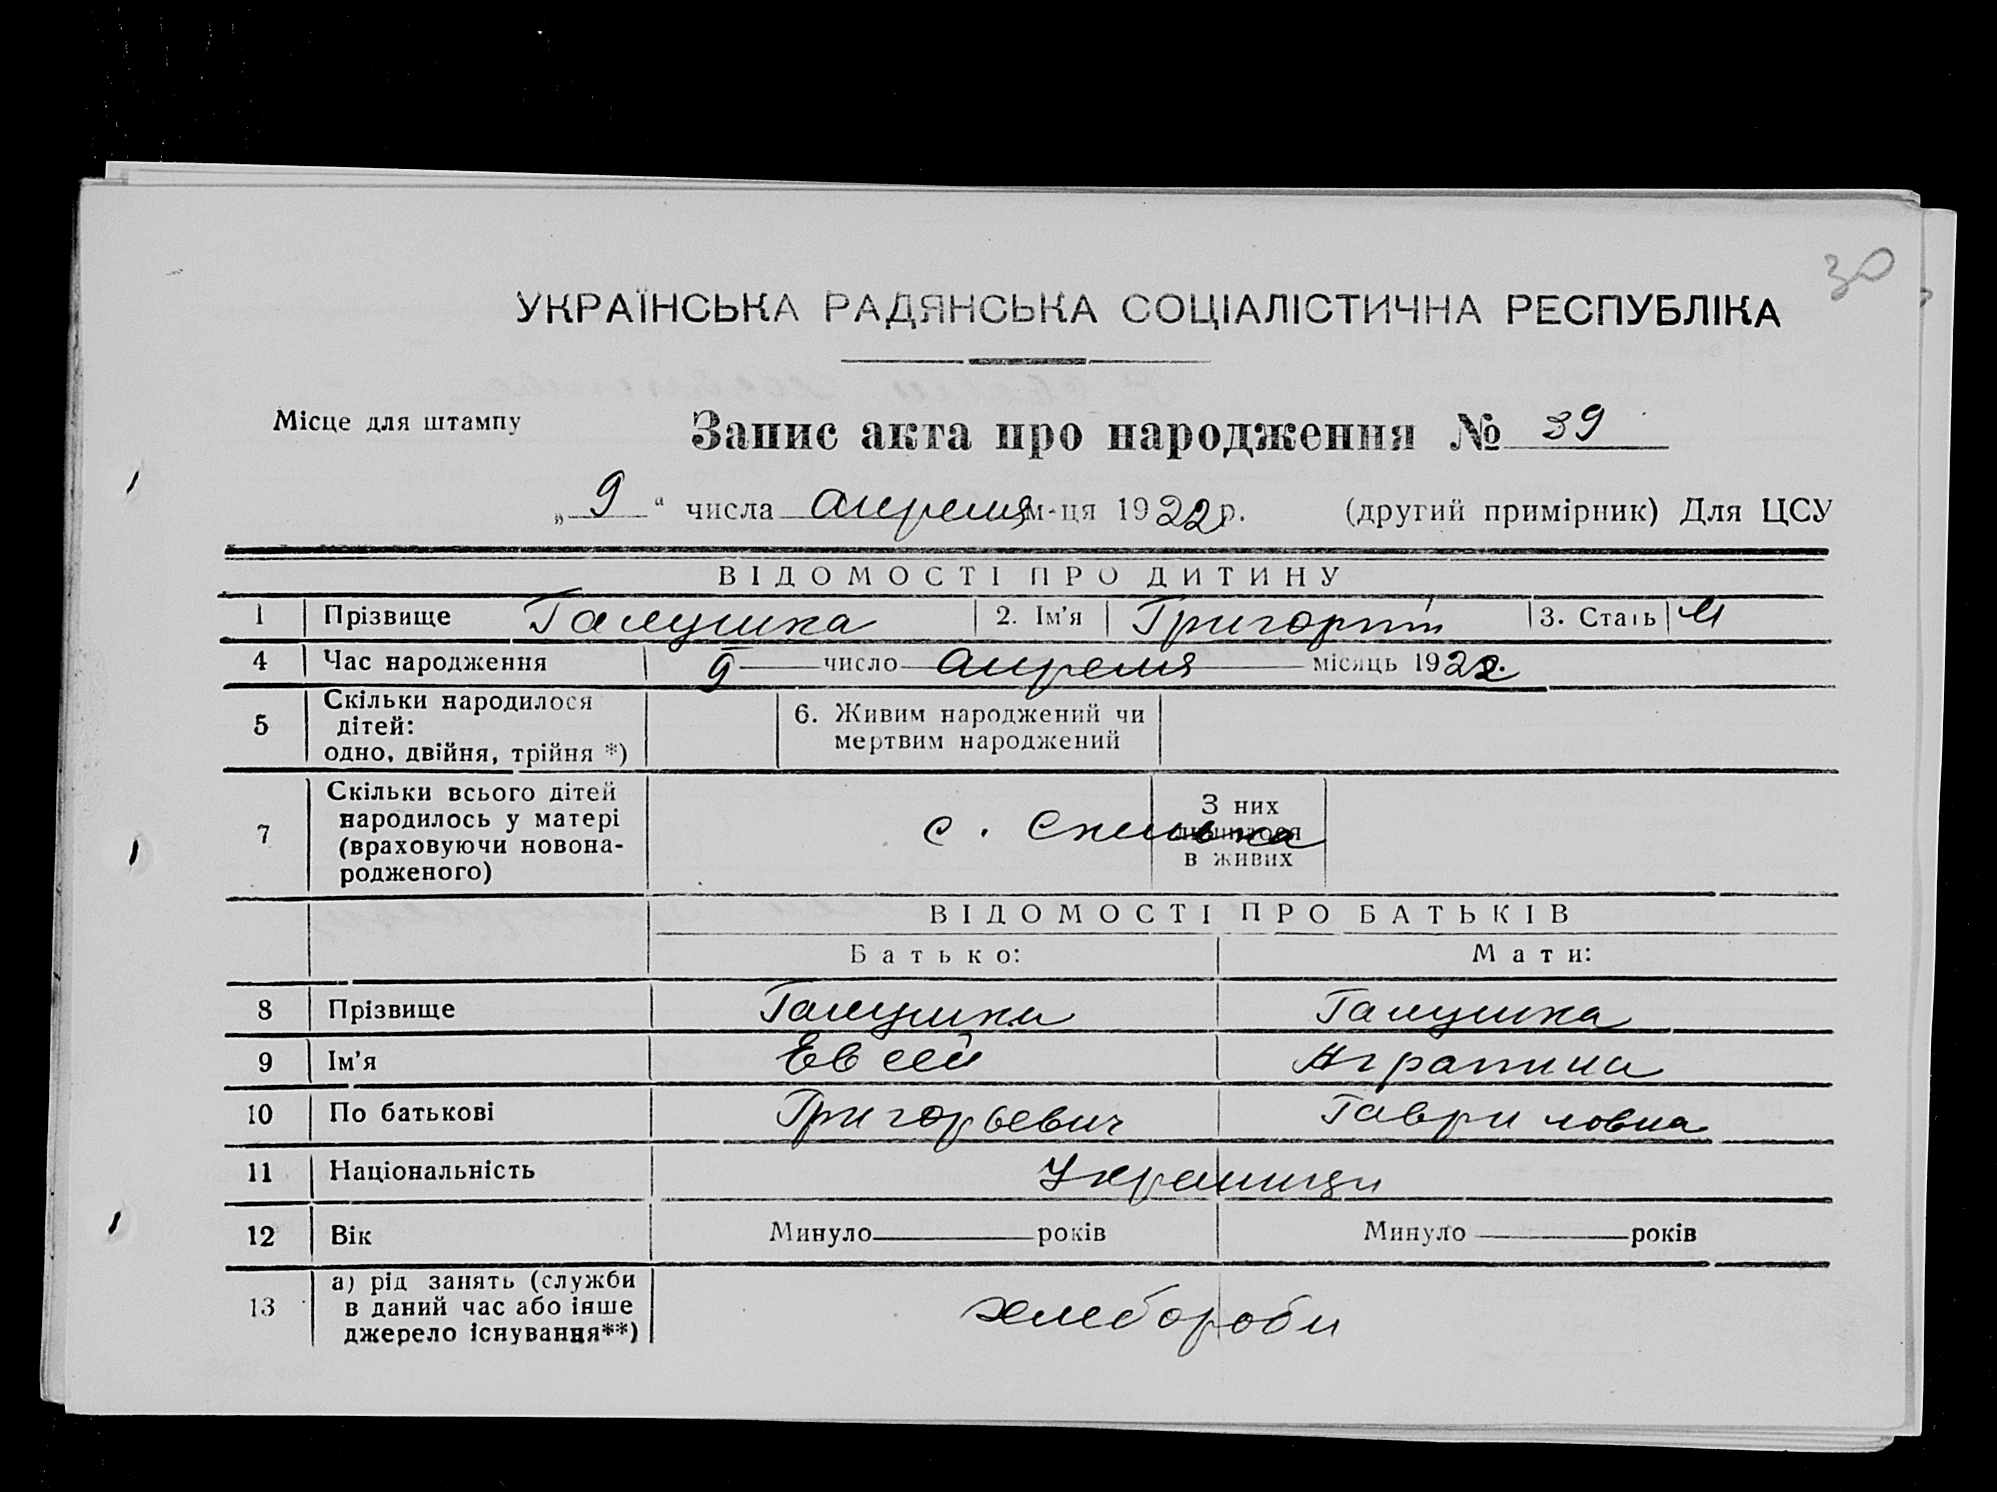 30
УКРАЇНСЬКА РАДЯНСЬКА СОЦІАЛІСТИЧНА РЕСПУБЛІКА
Місце для штампу
Запис акта про народження № 39
„ 9 “ числа апреля м-ця 1922 р. (другий примірник) Для ЦСУ
ВІДОМОСТІ ПРО ДИТИНУ
1 Прізвище Галушка 2. Ім’я Григорий 3. Стать М
4 Час народження 9 число апреля місяць 1922.
5 Скільки народилося дітей: одно, двійня, трійня *) 6. Живим народжений чи мертвим народжений
7 Скільки всього дітей народилось у матері (враховуючи новона-родженого) с. Скелька З них лишилося в живих
ВІДОМОСТІ ПРО БАТЬКІВ
Батько: Мати:
8 Прізвище Галушка Галушка
9 Ім’я Евсей Аграпина
10 По батькові Григорьевич Гавриловна
11 Національність Украинци
12 Вік Минуло років Минуло років
13 а) рід занять (служби в даний час або інше джерело існування**) хлебороби